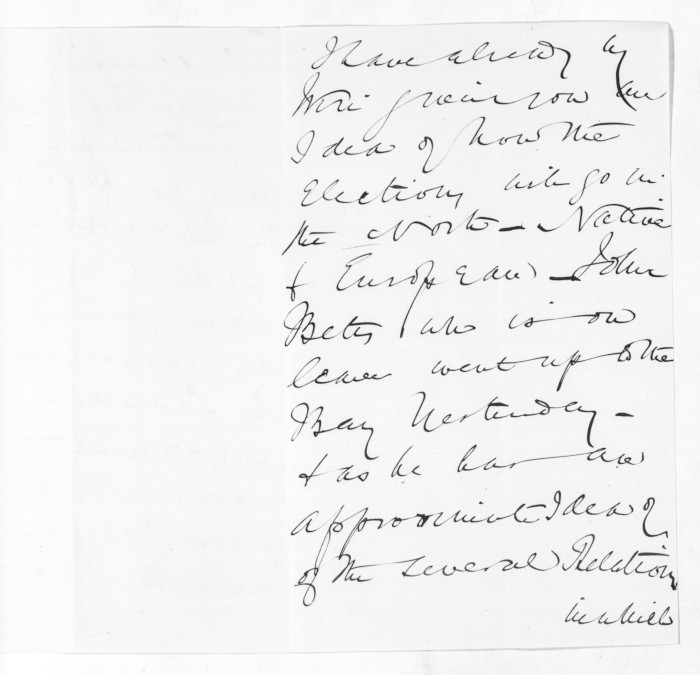 I have already by
Wire given you an
Idea of how the
Elections will go in
the North - Native
& European - John
Betts who is on
leave went up to the
Bay Yesterday -
& as he has an
approximate Idea of
of the several Relations
in which